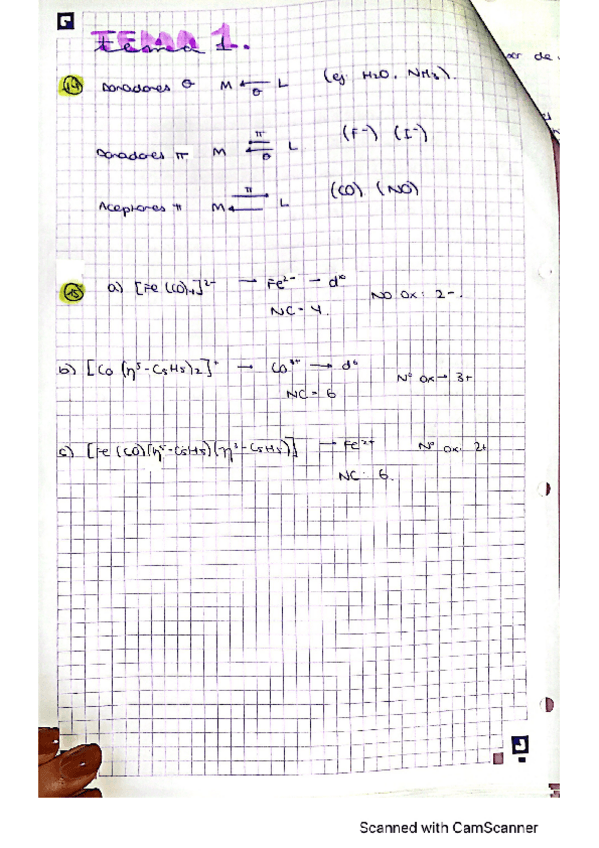 TEMA 1.
tema 1.
14 Donadores σ M ← σ L (ej: H2O, NH3).
Donadores π M π σ L (F⁻) (I⁻)
Aceptores π M π L (CO) (NO)
15 a) [Fe(CO)4]²⁻ → Fe²⁻ → d¹⁰ NO Ox: 2-.
NC = 4.
b) [Co(η⁵-C5H5)2]⁺ → Co³⁺ → d⁶ Nº Ox → 3+
NC = 6
c) [Fe(CO)(η⁵-C5H5)(η³-C5H5)] → Fe²⁺ Nº Ox: 2+
NC: 6.
Scanned with CamScanner